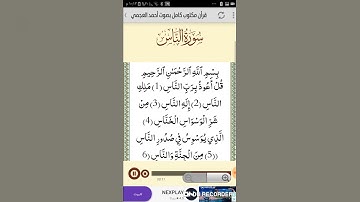 قرآن مكتوب كامل بصوت أحمد العجمي
سورة الناس
بِسْمِ اللَّهِ الرَّحْمَنِ الرَّحِيمِ
قُلْ أَعُوذُ بِرَبِّ النَّاسِ (1) مَلِكِ
النَّاسِ (2) إِلَهِ النَّاسِ (3) مِن
شَرِّ الْوَسْوَاسِ الْخَنَّاسِ (4)
الَّذِي يُوَسْوِسُ فِي صُدُورِ النَّاسِ
(5) مِنَ الْجِنَّةِ وَالنَّاسِ (6
NEXPLAY
RECORDER